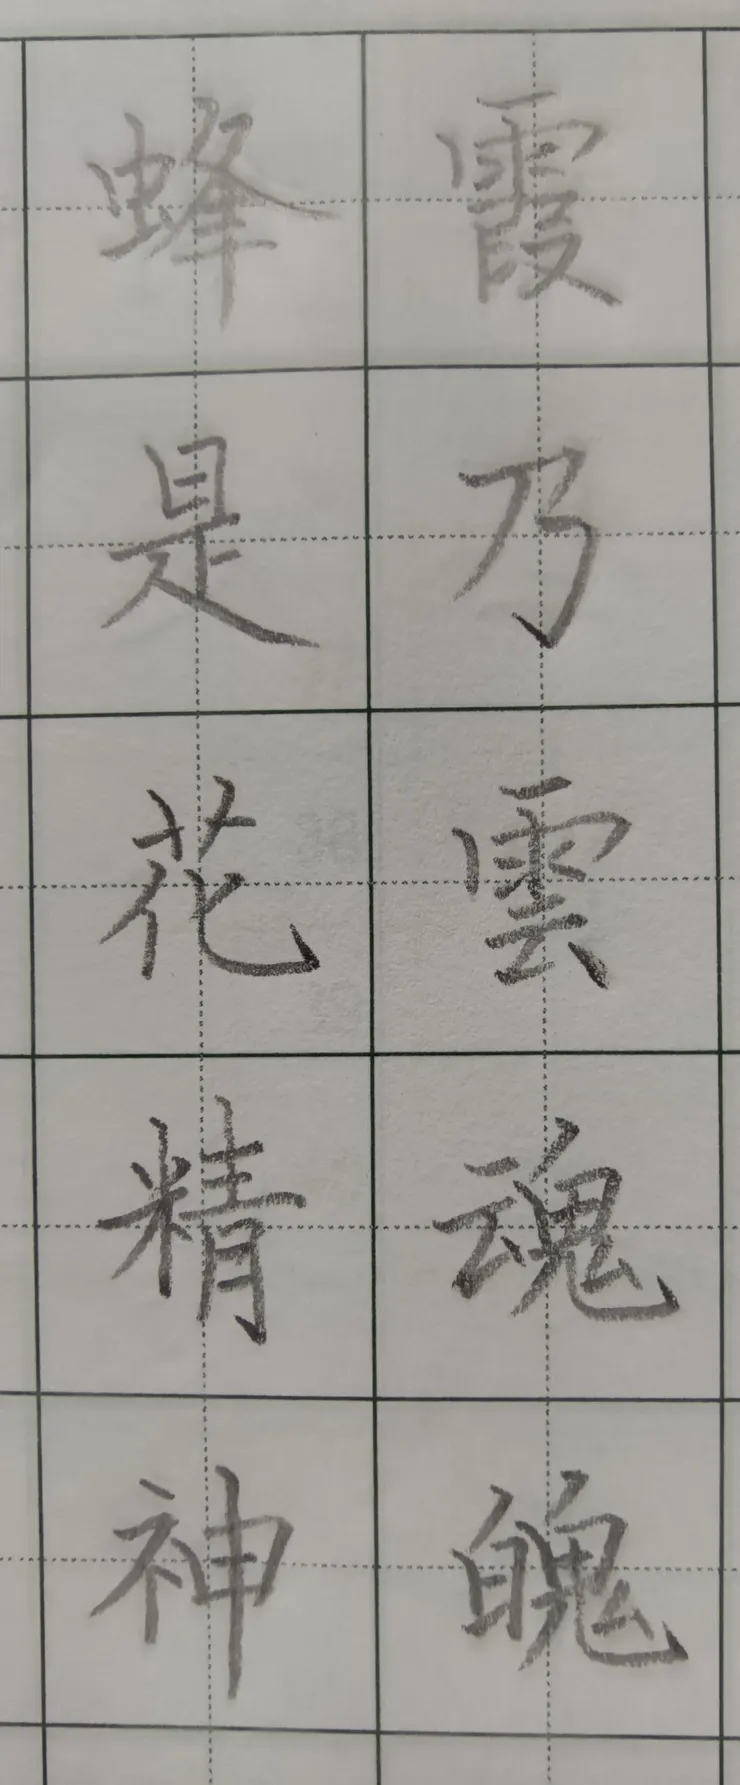 霞乃雲魂魄
蜂是花精神